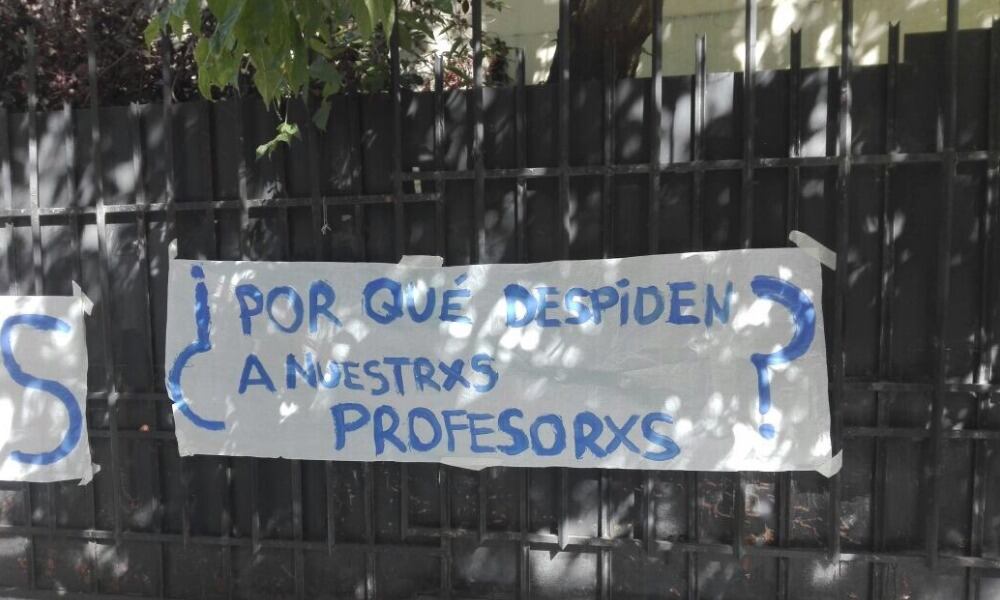 S
¿POR QUÉ DESPIDEN
A NUESTRXS
PROFESORXS?